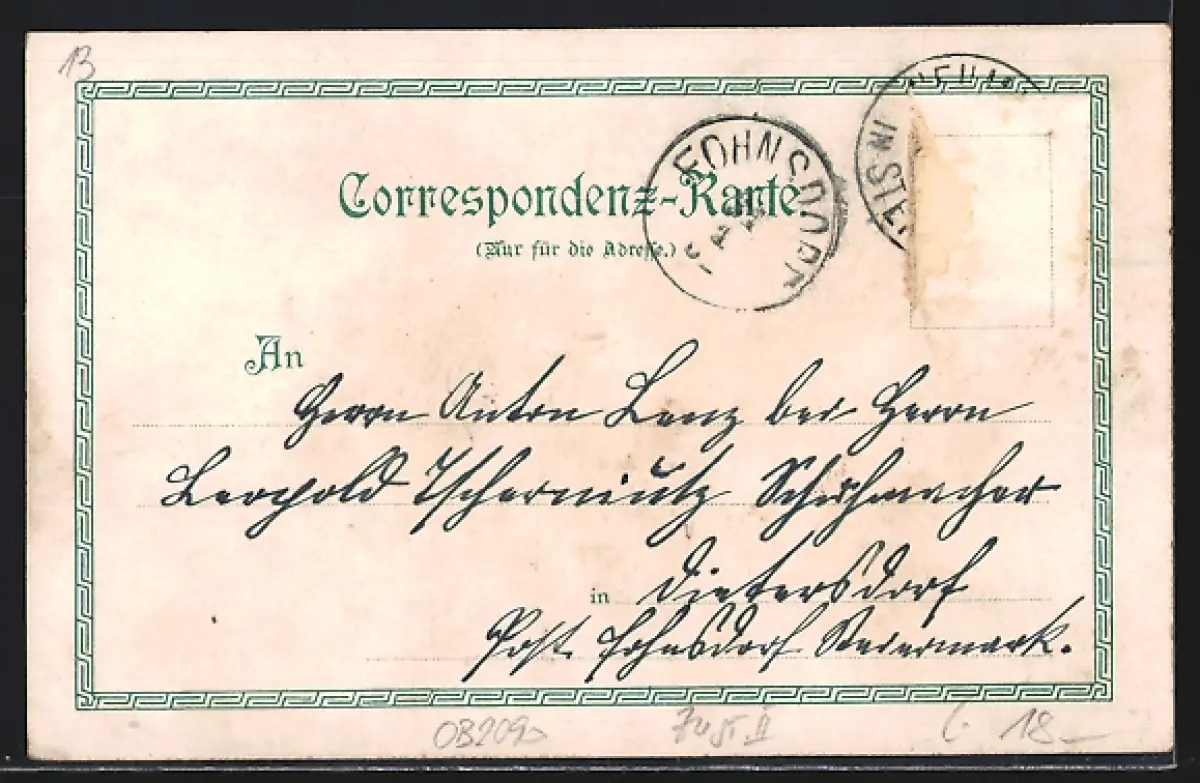 13
Correspondenz-Karte.
(Nur für die Adresse.)
FOHNSDORF
IN STEI
An
Herrn Anton Lenz bei Herrn
Leopold Tscherniutz Schuhmacher
in Dietersdorf
Post Fohnsdorf Steiermark.
OB209
18